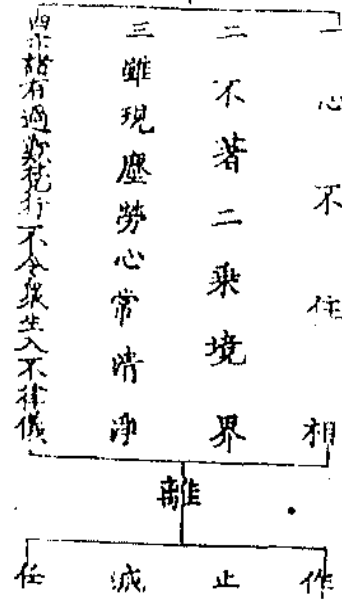 一心不住相
二不著二乘境界
三雖現塵勞心常清淨
四示諸有過歎梵行不令衆生入不律儀
離
作
止
滅
任